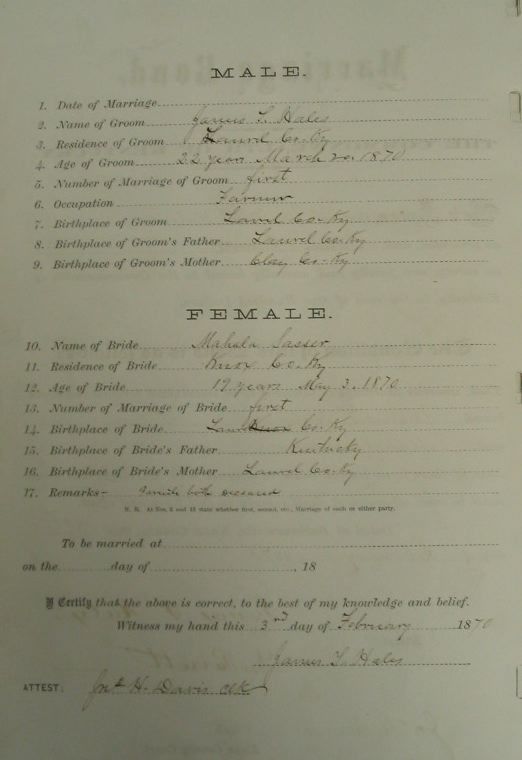 MALE.
1. Date of Marriage
2. Name of Groom James T. Hales
3. Residence of Groom Laurel Co. Ky
4. Age of Groom 22 years March 20. 1870
5. Number of Marriage of Groom first
6. Occupation Farmer
7. Birthplace of Groom Laurel Co. Ky
8. Birthplace of Groom's Father Laurel Co Ky
9. Birthplace of Groom's Mother Clay Co. Ky
FEMALE.
10. Name of Bride Mahala Sasser
11. Residence of Bride Knox Co. Ky
12. Age of Bride years May 3. 1870
13. Number of Marriage of Bride first
14. Birthplace of Bride Co. Ky
15. Birthplace of Bride's Father Kentucky
16. Birthplace of Bride's Mother Laurel Co. Ky
17. Remarks- both deceased
N. B. At Nos. 5 and 13 state whether first, second, etc., Marriage of each or either party.
To be married at
on the day of , 18
I Certify that the above is correct, to the best of my knowledge and belief.
Witness my hand this 3rd day of February 1870
James T. Hales
ATTEST: H. Davis clk